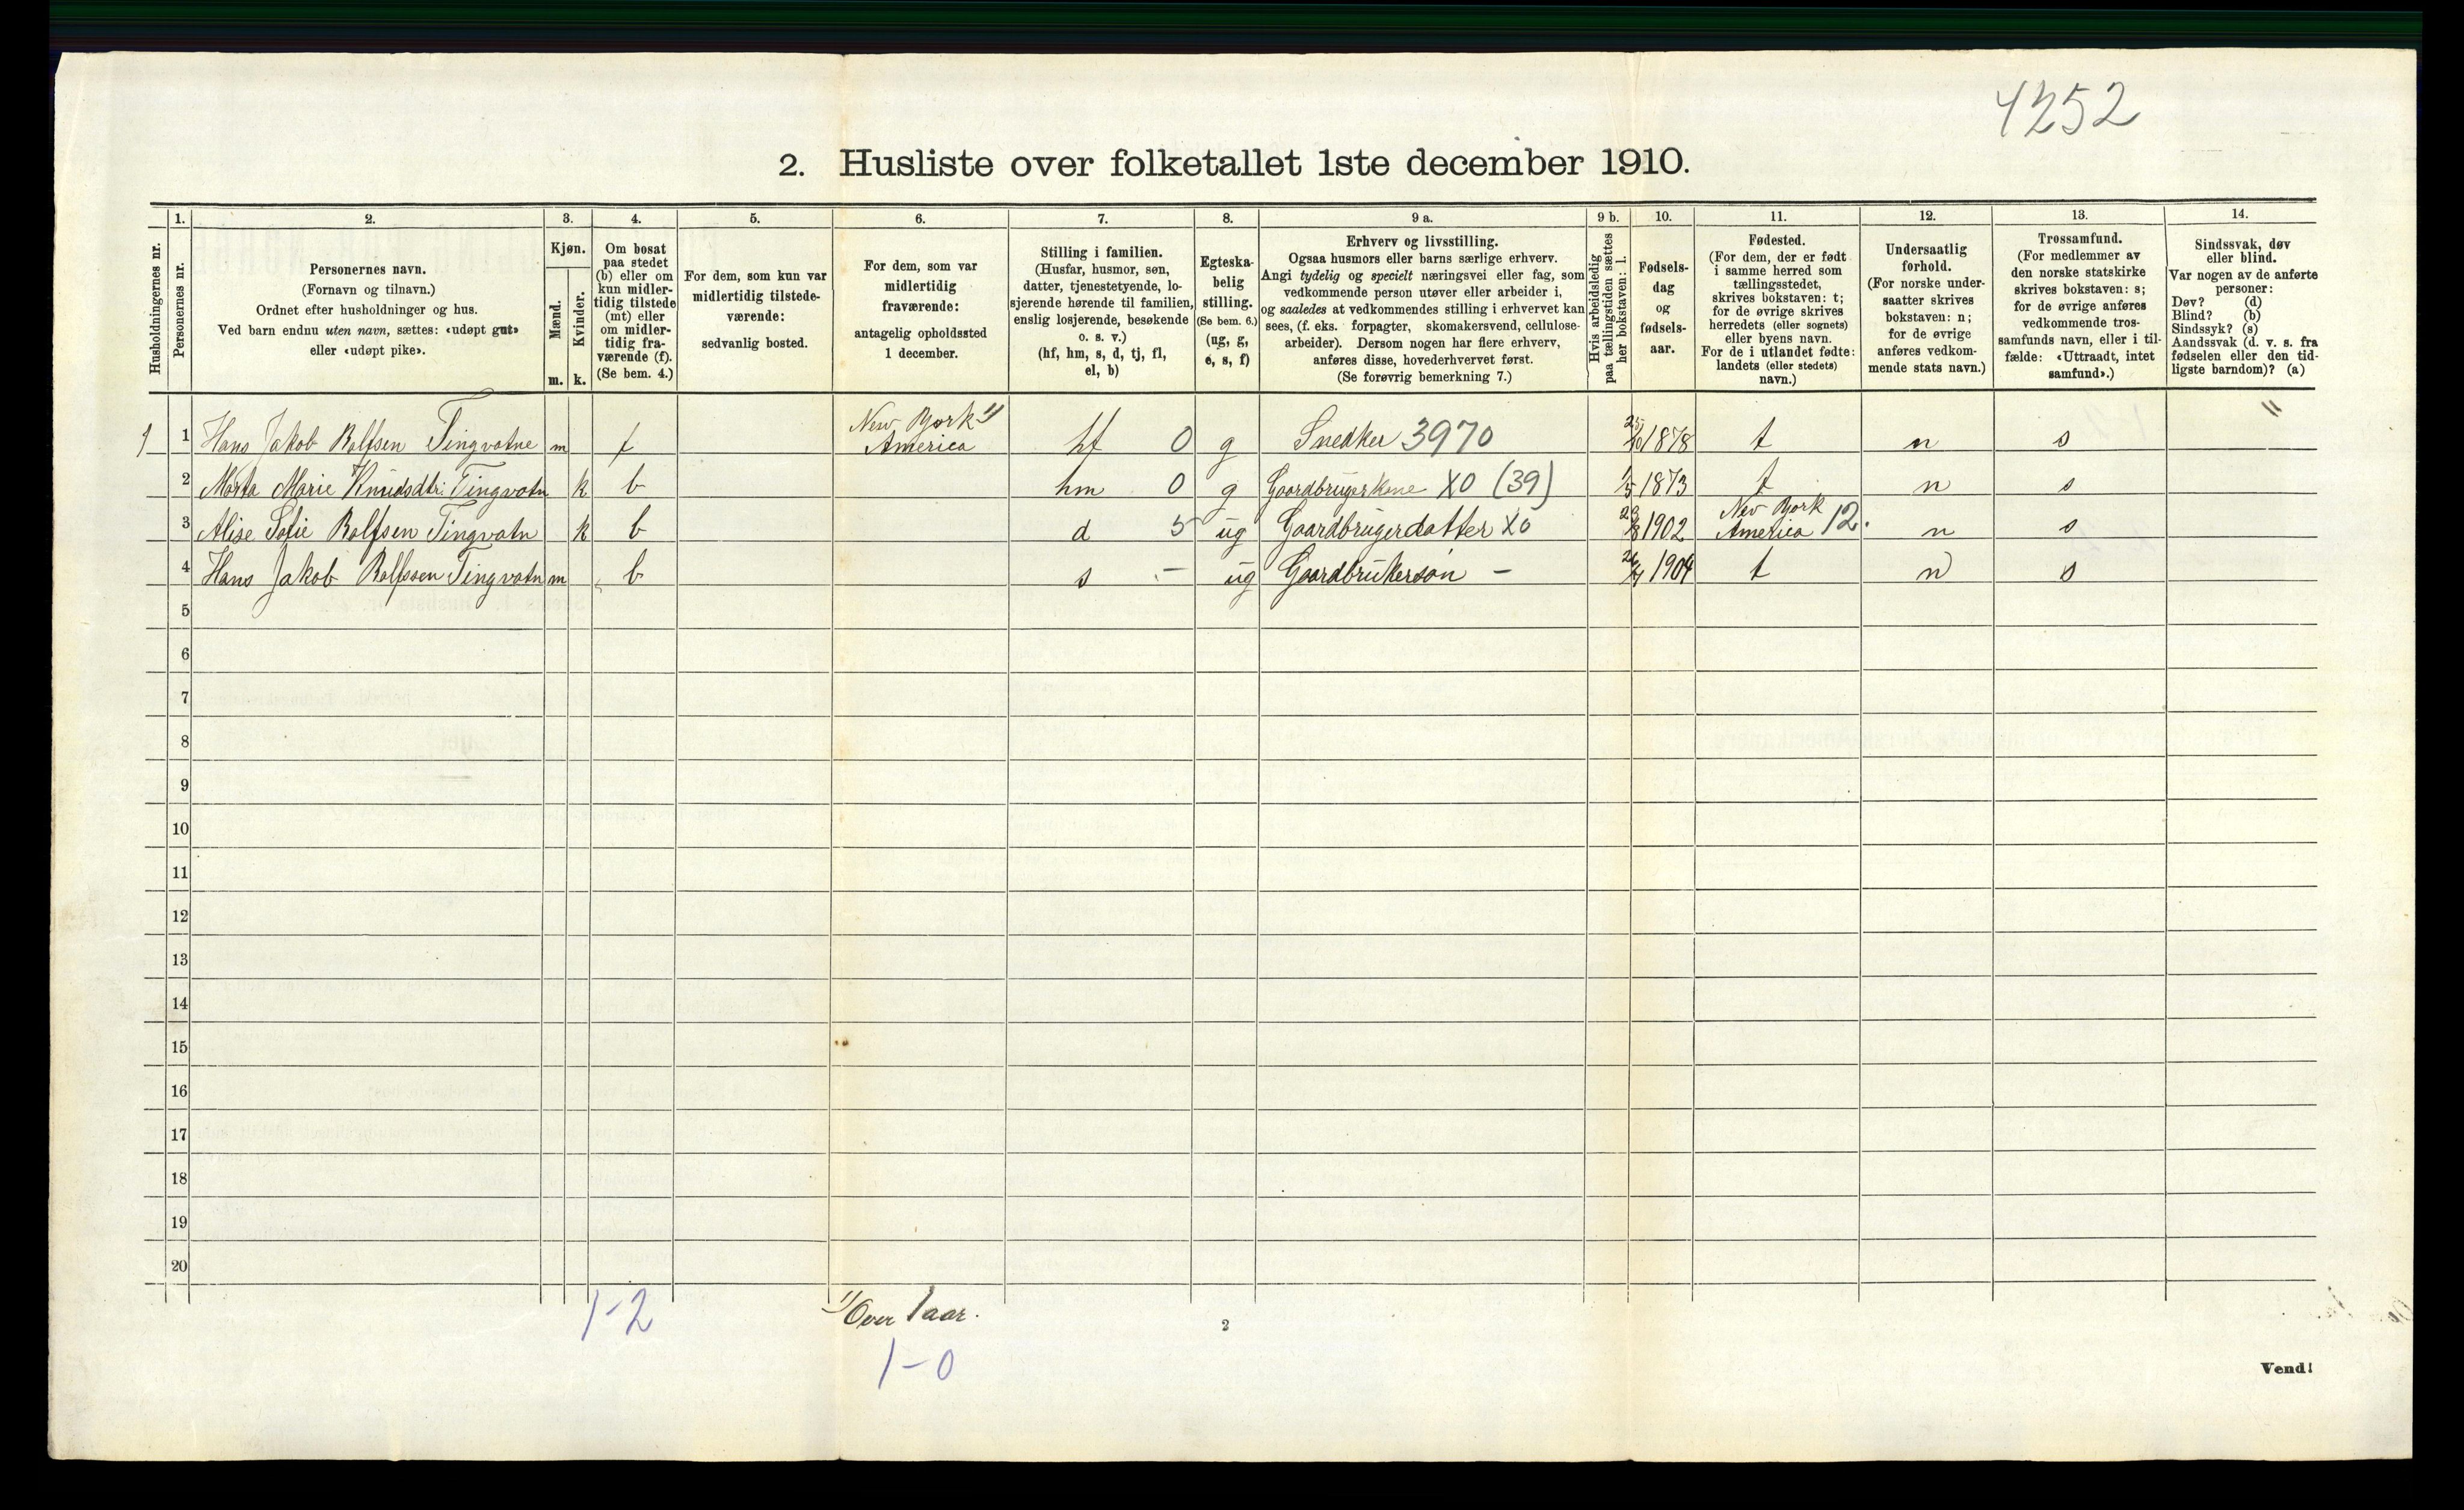 4252
2. Husliste over folketallet 1ste december 1910.
Husholdningernes nr.
1.
Personernes nr.
2.
Personernes navn.
(Fornavn og tilnavn.)
Ordnet efter husholdninger og hus.
Ved barn endnu uten navn, sættes: «udøpt gut»
eller «udøpt pike».
3.
Kjøn.
Mænd.
m.
Kvinder.
k.
4.
Om bosat
paa stedet
(b) eller om
kun midler-
tidig tilstede
(mt) eller
om midler-
tidig fra-
værende (f).
(Se bem. 4.)
5.
For dem, som kun var
midlertidig tilstede-
værende:
sedvanlig bosted.
6.
For dem, som var
midlertidig
fraværende:
antagelig opholdssted
1 december.
7.
Stilling i familien.
(Husfar, husmor, søn,
datter, tjenestetyende, lo-
sjerende hørende til familien,
enslig losjerende, besøkende
o. s. v.)
(hf, hm, s, d, tj, fl,
el, b)
8.
Egteska-
belig
stilling.
(Se bem. 6.)
(ug, g,
e, s, f)
9 a.
Erhverv og livsstilling.
Ogsaa husmors eller barns særlige erhverv.
Angi tydelig og specielt næringsvei eller fag, som
vedkommende person utøver eller arbeider i,
og saaledes at vedkommendes stilling i erhvervet kan
sees, (f. eks. forpagter, skomakersvend, cellulose-
arbeider). Dersom nogen har flere erhverv,
anføres disse, hovederhvervet først.
(Se forøvrig bemerkning 7.)
9 b.
Hvis arbeidsledig
paa tællingstiden sættes
her bokstaven: l.
10.
Fødsels-
dag
og
fødsels-
aar.
11.
Fødested.
(For dem, der er født
i samme herred som
tællingsstedet,
skrives bokstaven: t;
for de øvrige skrives
herredets (eller sognets)
eller byens navn.
For de i utlandet fødte:
landets (eller stedets)
navn.)
12.
Undersaatlig
forhold.
(For norske under-
saatter skrives
bokstaven: n;
for de øvrige
anføres vedkom-
mende stats navn.)
13.
Trossamfund.
(For medlemmer av
den norske statskirke
skrives bokstaven: s;
for de øvrige anføres
vedkommende tros-
samfunds navn, eller i til-
fælde: «Uttraadt, intet
samfund».)
14.
Sindssvak, døv
eller blind.
Var nogen av de anførte
personer:
Døv? (d)
Blind? (b)
Sindssyk? (s)
Aandssvak (d. v. s. fra
fødselen eller den tid-
ligste barndom)? (a)
1 1 Hans Jakob Rolfsen Tingvatne m f New York 1) America hf 0 g Snedker 3970 1878 t n s "
2 Marta Marie Knudsdtr. Tingvatn k b hm 0 g Gaardbrugerkone X0 (39) 1/5 1873 t n s
3 Alise Sofie Rolfsen Tingvatn k b d 5 ug Gaardbrugerdatter X0 23/8 1902 New York America 12. n s
4 Hans Jakob Rolfssen Tingvatn m b s - ug Gaardbrukersøn - 1904 t n s
5
6
7
8
9
10
11
12
13
14
15
16
17
18
19
20
1-2
1) Over 1 aar.
1-0
2
Vend!